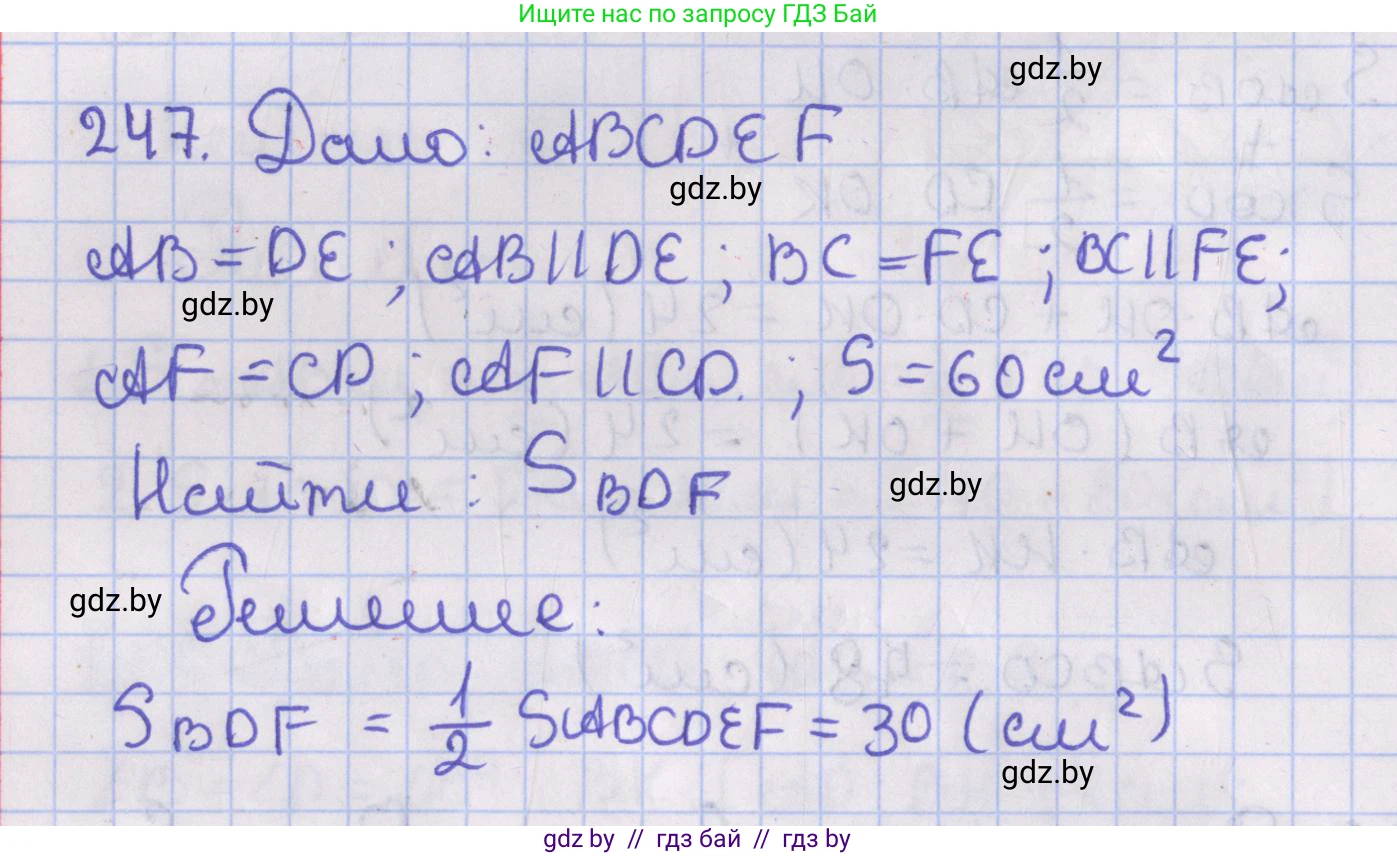 Ищите нас по запросу ГДЗ Бай
gdz.by
247. Дано: ABCDEF
gdz.by
AB=DE; AB||DE; BC=FE; BC||FE;
gdz.by
AF=CD; AF||CD.; S=60см²
Найти: S BDF
gdz.by
gdz.by
Решение:
S BDF = 1/2 SABCDEF = 30 (см²)
gdz.by
gdz by // гдз бай // гдз by